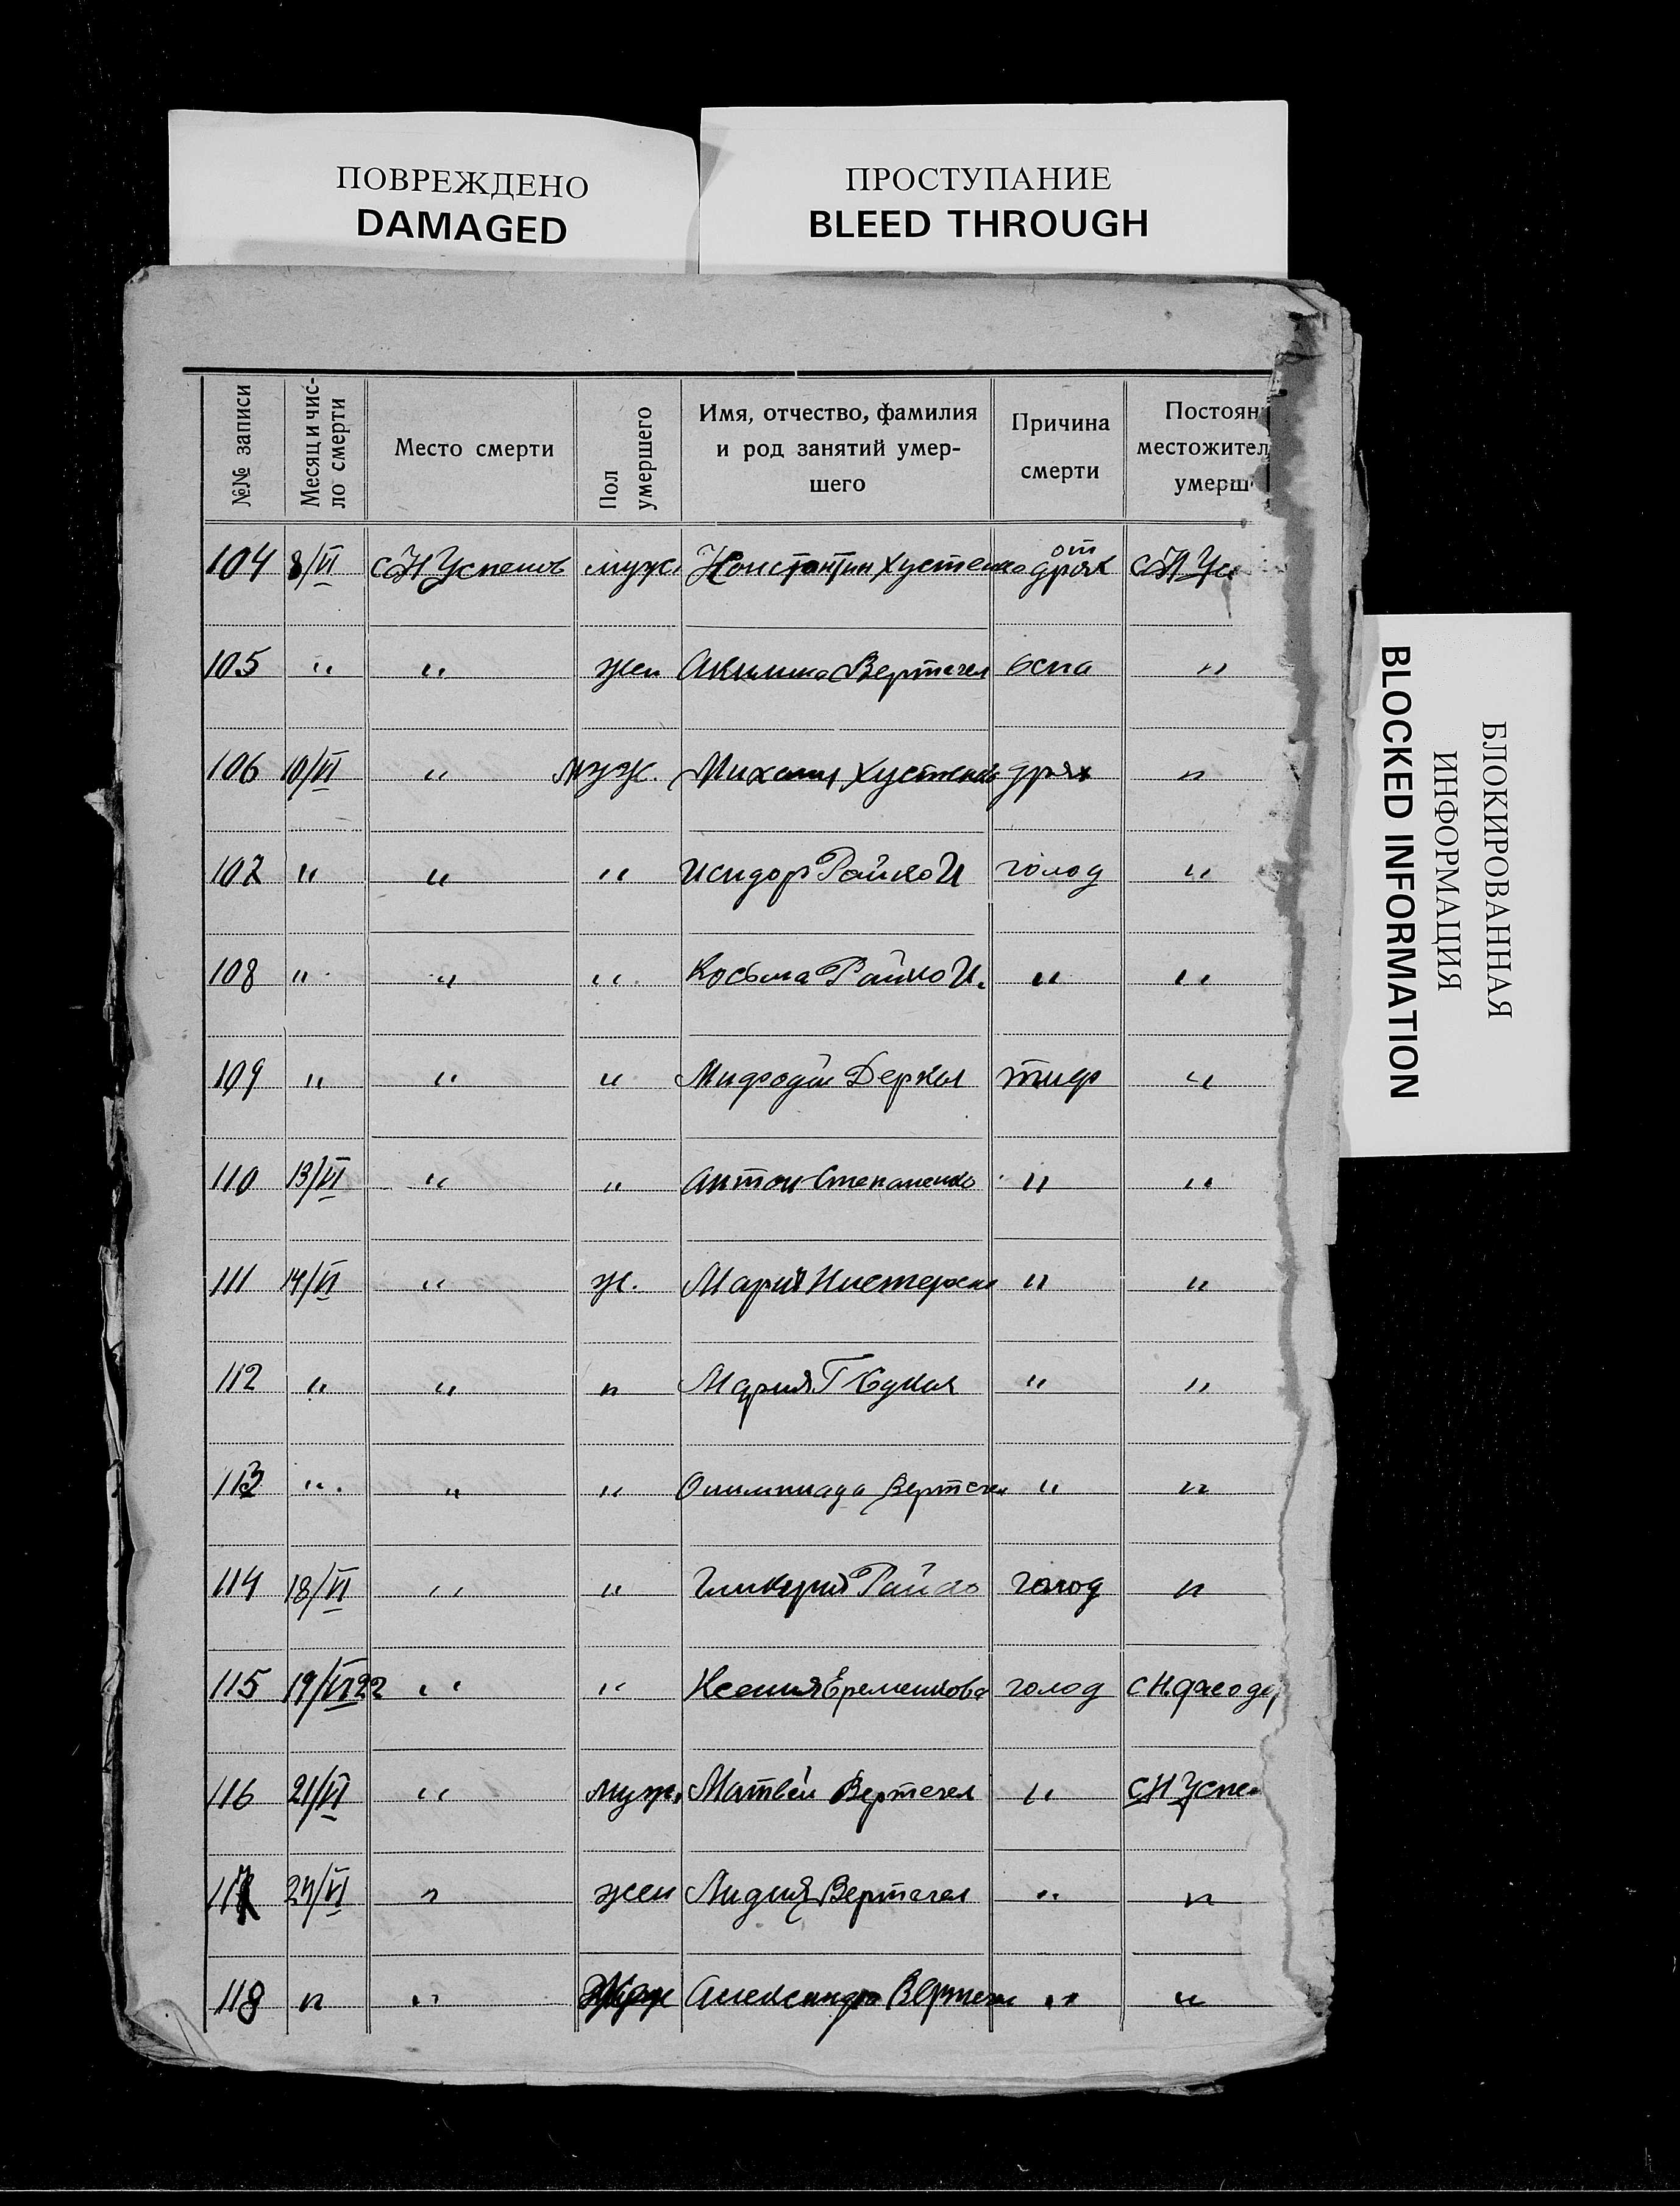 ПОВРЕЖДЕНО
DAMAGED
ПРОСТУПАНИЕ
BLEED THROUGH
БЛОКИРОВАННАЯ
ИНФОРМАЦИЯ
BLOCKED INFORMATION
№№ записи
Месяц и чис-
ло смерти
Место смерти
Пол
умершего
Имя, отчество, фамилия
и род занятий умер-
шего
Причина
смерти
Постоян
местожител
умерш
104 8/VI муж. Константин Хустенко от дрях
105 " " жен Вертечел оспа "
106 10/VI " муж. Михаил Хустенко дрях "
107 " " " Исидор Райко И голод "
108 " " " Косьма Райко И. " "
109 " " " Мифодий Деркач тиф "
110 13/VI " " Антон Степаненко " "
111 14/VI " ж. Мария " "
112 " " " Мария Г " "
113 " " " Олимпиада Вертечел " "
114 18/VI " " Гликерия Райко голод "
115 19/VI 22 " " Ксения Еременкова голод
116 21/VI " муж. Матвей Вертечел " СН Успе
117 24/VI " жен Лидия Вертечел " "
118 " " Александра Вертечел " "